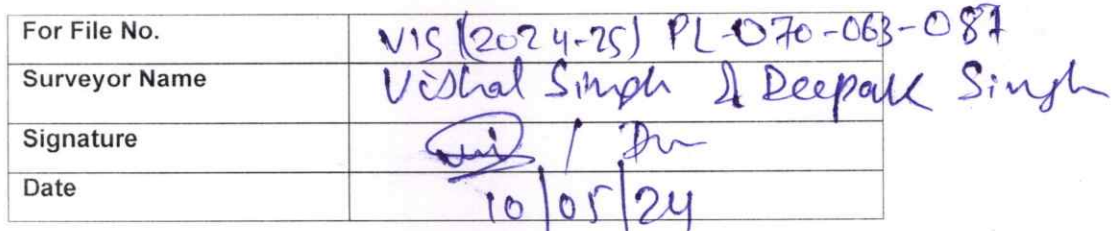 For File No. VIS (2024-25) PL-070-063-087
Surveyor Name Vishal Singh & Deepak Singh
Signature
Date 10/05/24